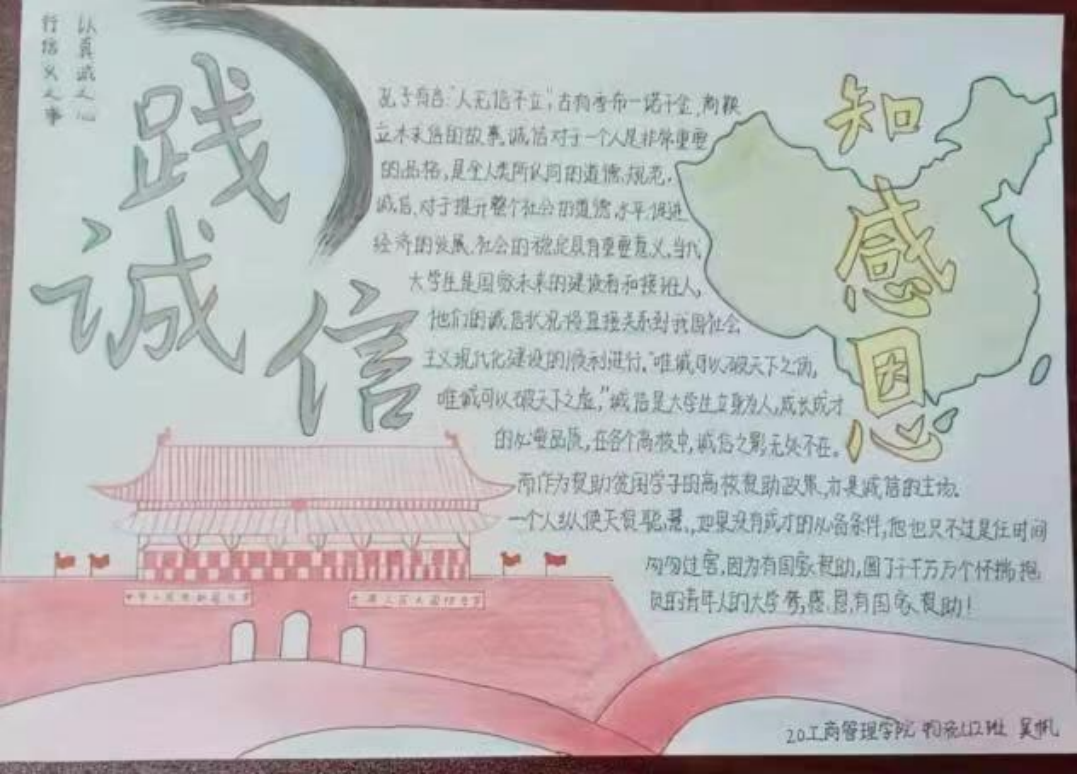 认真诚之心
行信义之事
践
诚
信
知
感
恩
孔子有言:“人无信不立”,古有季布一诺千金,商鞅
立木求信的故事。诚信对于一个人是非常重要
的品格,是全人类所认同的道德规范,
诚信对于提升整个社会的道德水平,促进
经济的发展、社会的稳定具有重要意义。当代
大学生是国家未来的建设者和接班人,
他们的诚信状况将直接关系到我国社会
主义现代化建设的顺利进行。“唯诚可以破天下之伪,
唯诚可以破天下之虚,”诚信是大学生立身为人,成长成才
的必要品质,在各个高校中,诚信之影无处不在。
而作为资助贫困学子的高校资助政策,亦是诚信的主场。
一个人纵使天资聪慧,如果没有成才的必备条件,他也只不过是任时间
匆匆过客,因为有国家资助,圆了千千万万个怀揣抱
负的青年人的大学梦,感恩有国家资助!
20工商管理学院 物流112班 吴帆